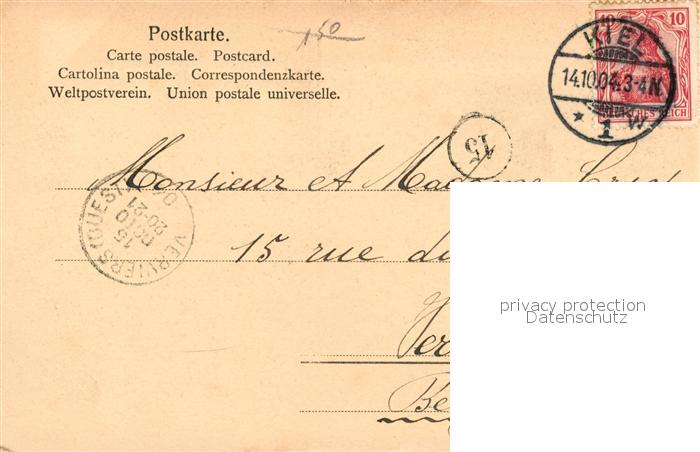 Postkarte.
Carte postale. Postcard.
Cartolina postale. Correspondenzkarte.
Weltpostverein. Union postale universelle.
150
10 10
KIEL
14.10.04.3-4N.
* 1 W.
DEUTSCHES REICH
15
Monsieur et Madame
15 rue du
VERVIERS (OUEST)
15
OCTO
20-21
privacy protection
Datenschutz